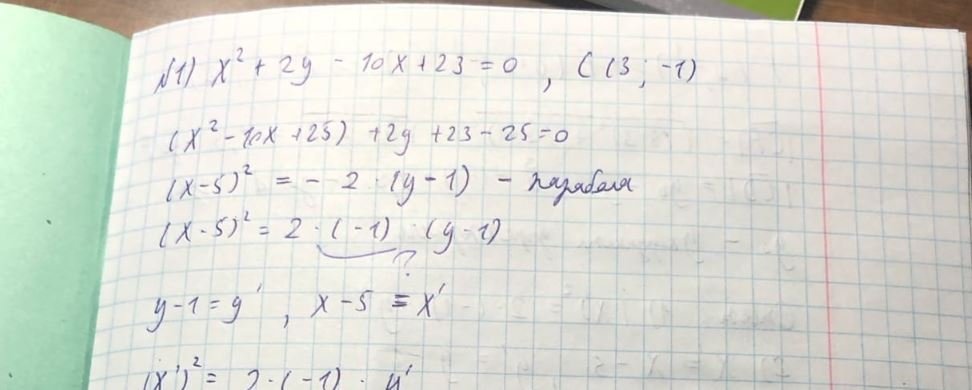 №1) x² + 2y - 10x + 23 = 0 , C(3; -1)
(x² - 10x + 25) + 2y + 23 - 25 = 0
(x-5)² = - 2 · (y-1) - парабола
(x-5)² = 2 · (-1) · (y-1)
?
y-1 = y' , x-5 = x'
(x')² = 2·(-1) · y'